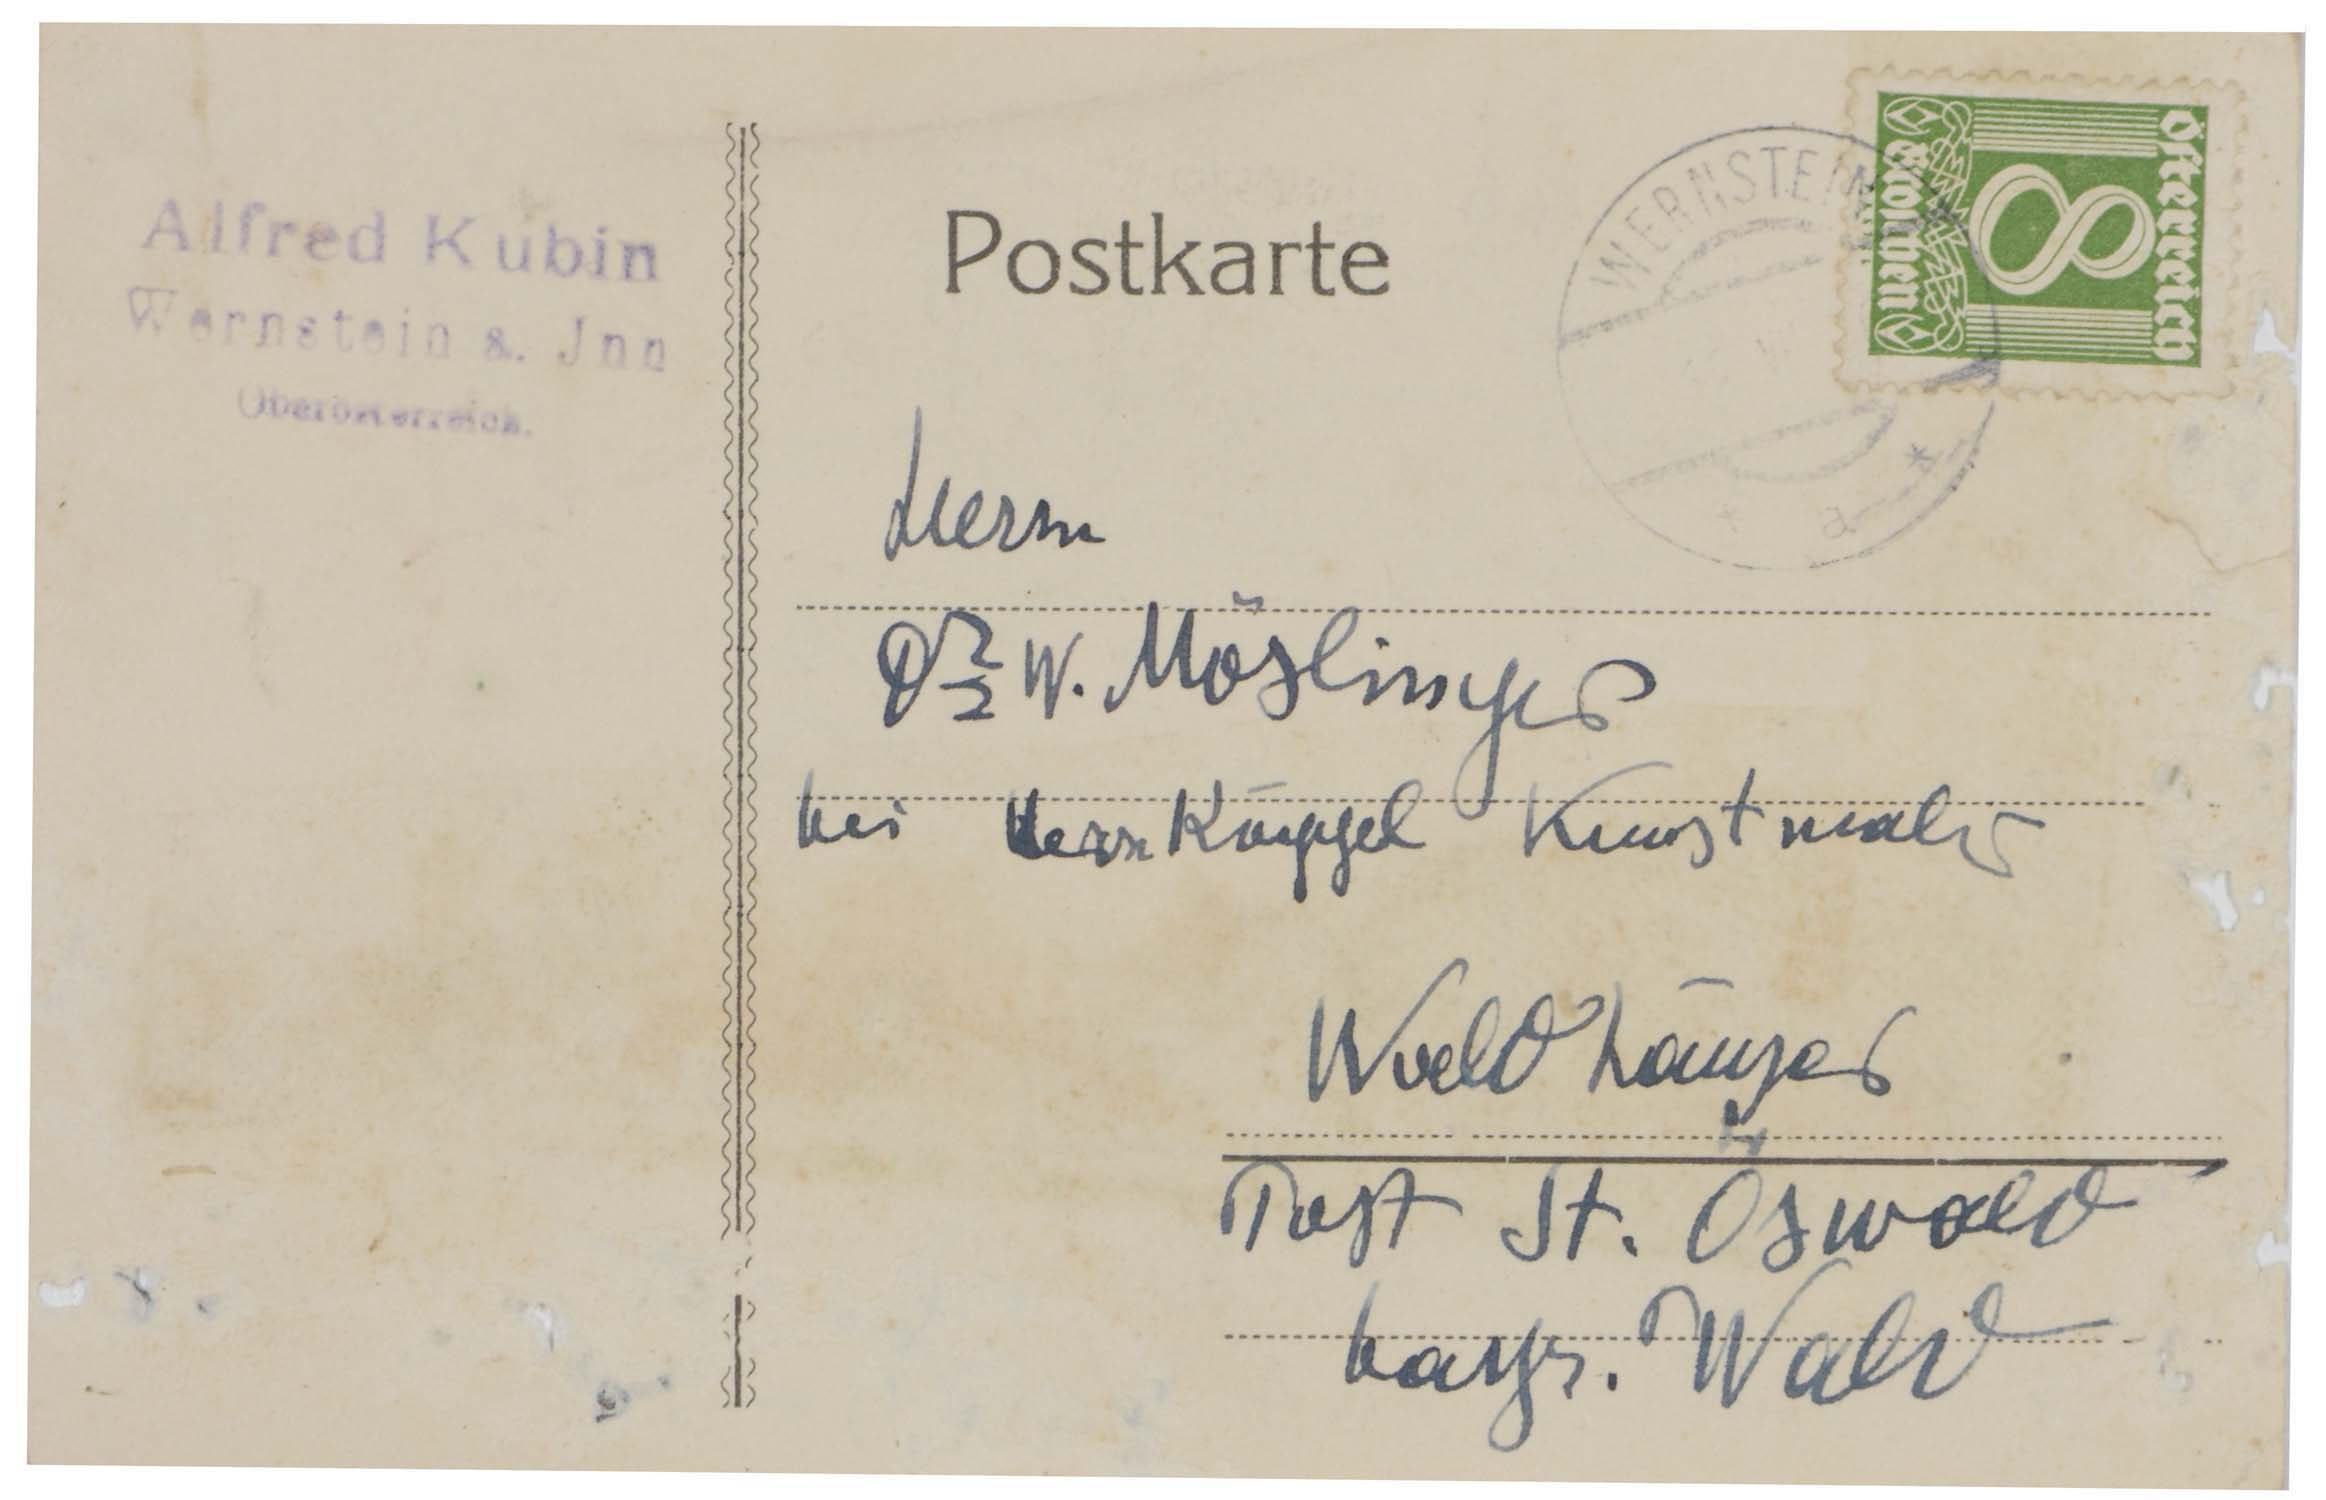 Alfred Kubin
Wernstein a. Jnn
Oberösterreich.
Postkarte
WERNSTEIN
Österreich
8
Groschen
a
Herrn
Dr W. Möslinger
bei Herrn Köppel Kunstmaler
Waldhäuser
Post St. Oswald
bayr. Wald